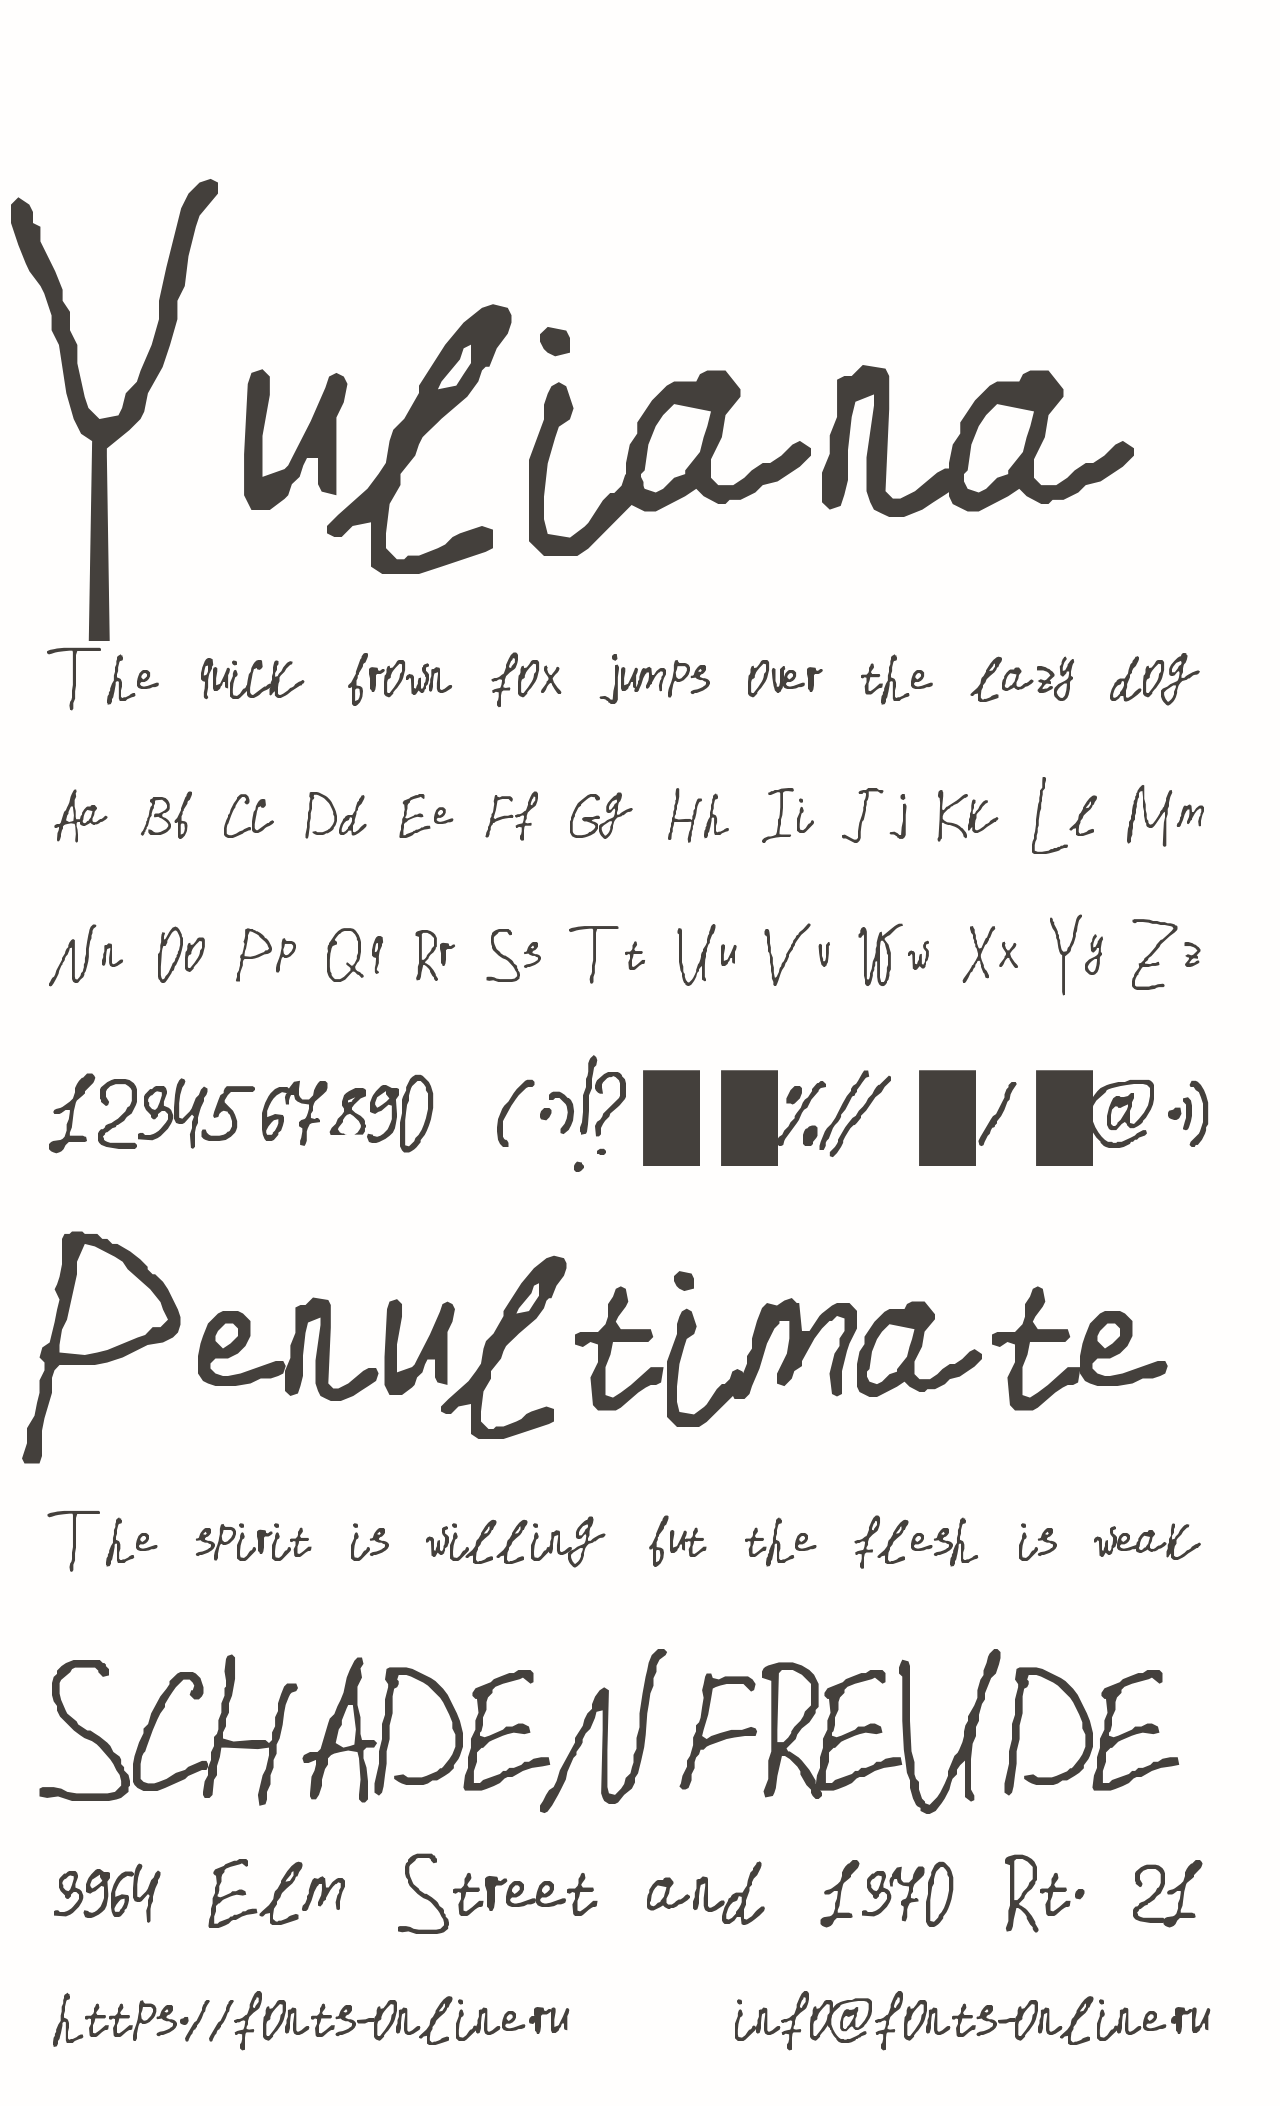 Yuliana
The quick brown fox jumps over the lazy dog
Aa Bb Cc Dd Ee Ff Gg Hh Ii Jj Kk Ll Mm
Nn Oo Pp Qq Rr Ss Tt Uu Vv Ww Xx Yy Zz
1234567890 (·)!? %// / @·))
Penultimate
The spirit is willing but the flesh is weak
SCHADENFREUDE
3964 Elm Street and 1370 Rt. 21
https://fonts-online.ru info@fonts-online.ru